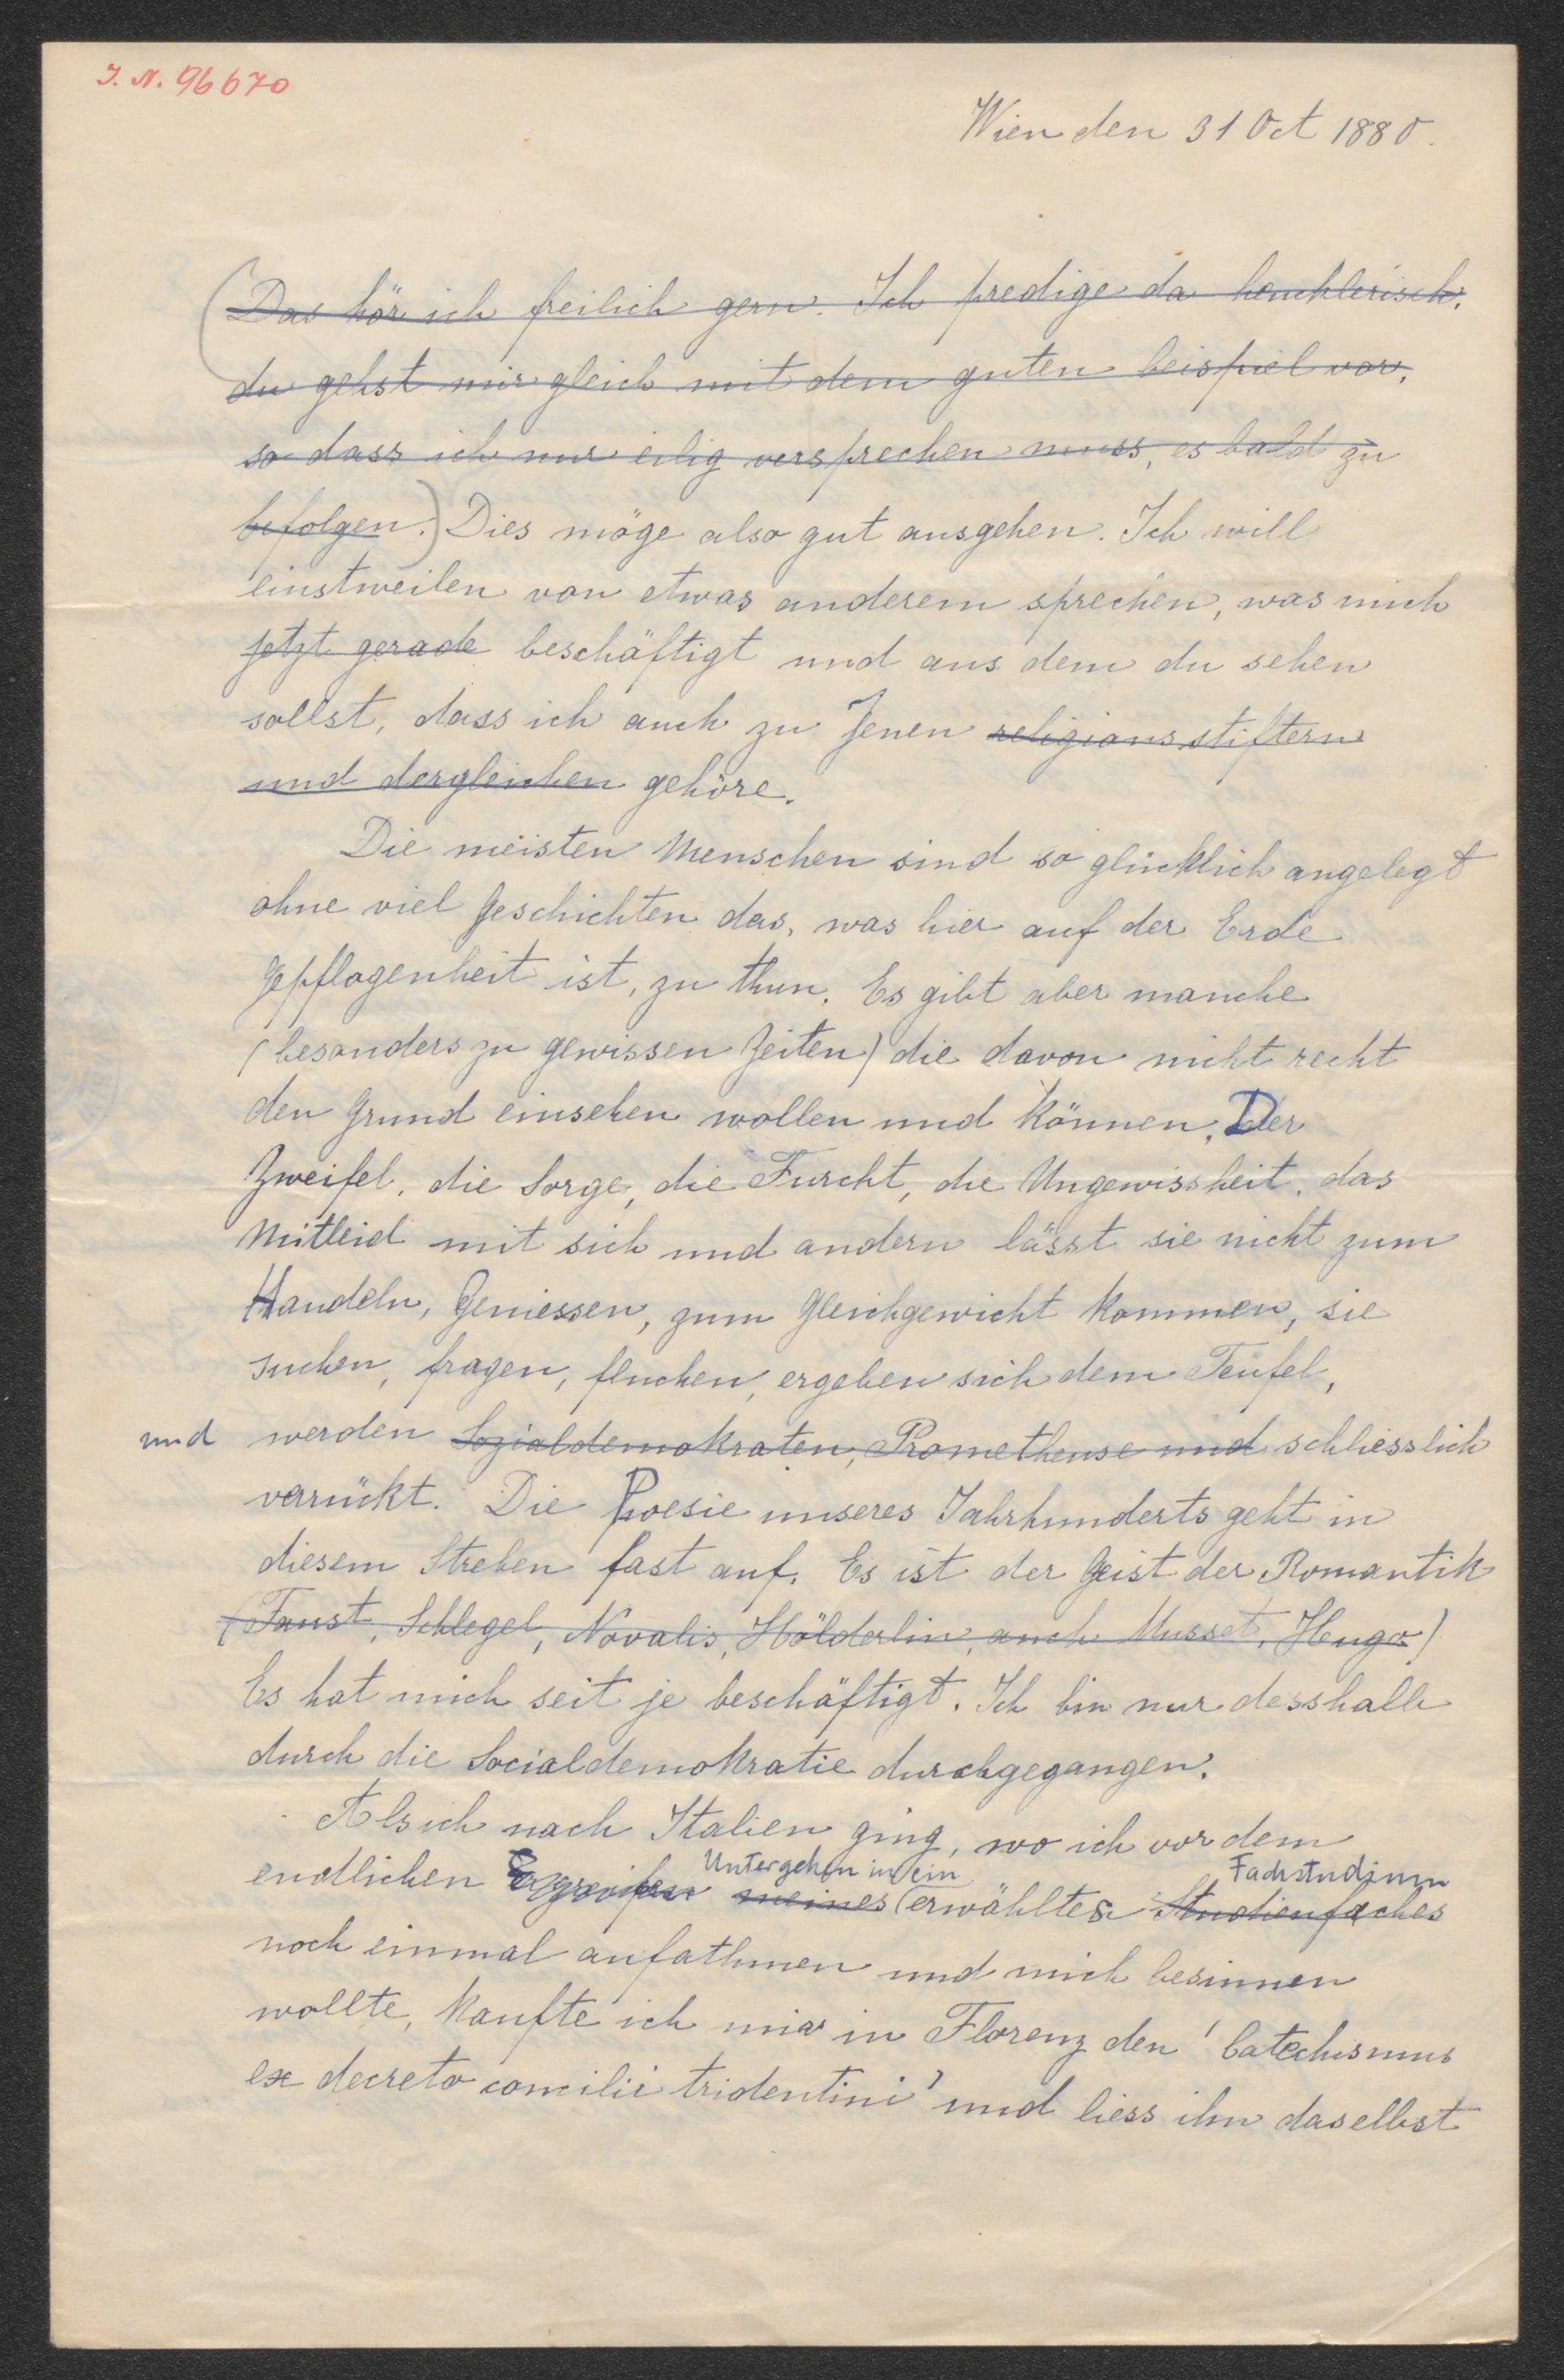 J. N. 96670
Wien den 31 Oct 1880.
(Das hör ich freilich gern. Ich predige da heuchlerisch,
du gehst mir gleich mit dem guten beispiel vor,
so dass ich nur eilig versprechen muss, es bald zu
befolgen.) Dies möge also gut ausgehen. Ich will
einstweilen von etwas anderem sprechen, was mich
jetzt gerade beschäftigt und aus dem du sehen
sollst, dass ich auch zu Jenen religionsstiftern
und dergleichen gehöre.
Die meisten Menschen sind so glücklich angelegt
ohne viel Geschichten das, was hier auf der Erde
Gepflogenheit ist, zu thun. Es gibt aber manche
(besonders zu gewissen Zeiten) die davon nicht recht
den Grund einsehen wollen und können. Der
Zweifel, die Sorge, die Furcht, die Ungewissheit, das
Mitleid mit sich und andern lässt sie nicht zum
Handeln, Geniessen, zum Gleichgewicht kommen, sie
suchen, fragen, fluchen, ergeben sich dem Teufel,
und werden Sozialdemokraten, Prometheuse und schliesslich
verrückt. Die Poesie unseres Jahrhunderts geht in
diesem Streben fast auf. Es ist der Geist der Romantik
(Faust, Schlegel, Novalis, Hölderlin, auch Musset, Hugo)
Es hat mich seit je beschäftigt. Ich bin nur desshalb
durch die Socialdemokratie durchgegangen.
Als ich nach Italien ging, wo ich vor dem
Untergehen in ein Fachstudium
endlichen Ergreifen meines (erwähltes Studienfaches
noch einmal aufathmen und mich besinnen
wollte, kaufte ich mir in Florenz den 'Catechismus
ex decreto concilii tridentini' und liess ihn daselbst